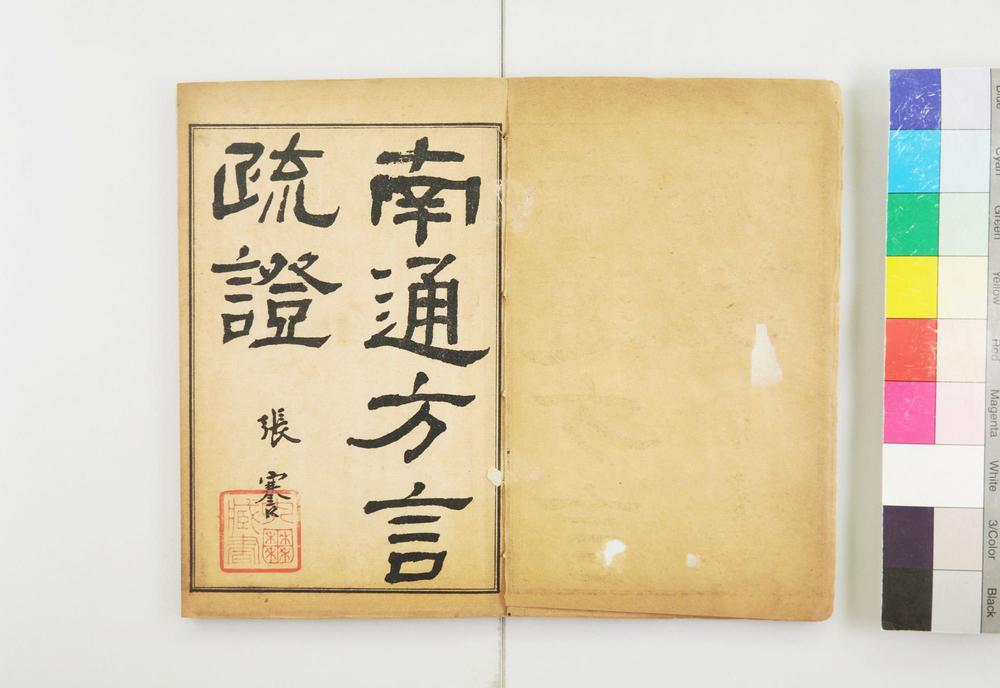 南通方言
疏證
張謇
藏書
Blue
Cyan
Green
Yellow
Red
Magenta
White
3/Color
Black